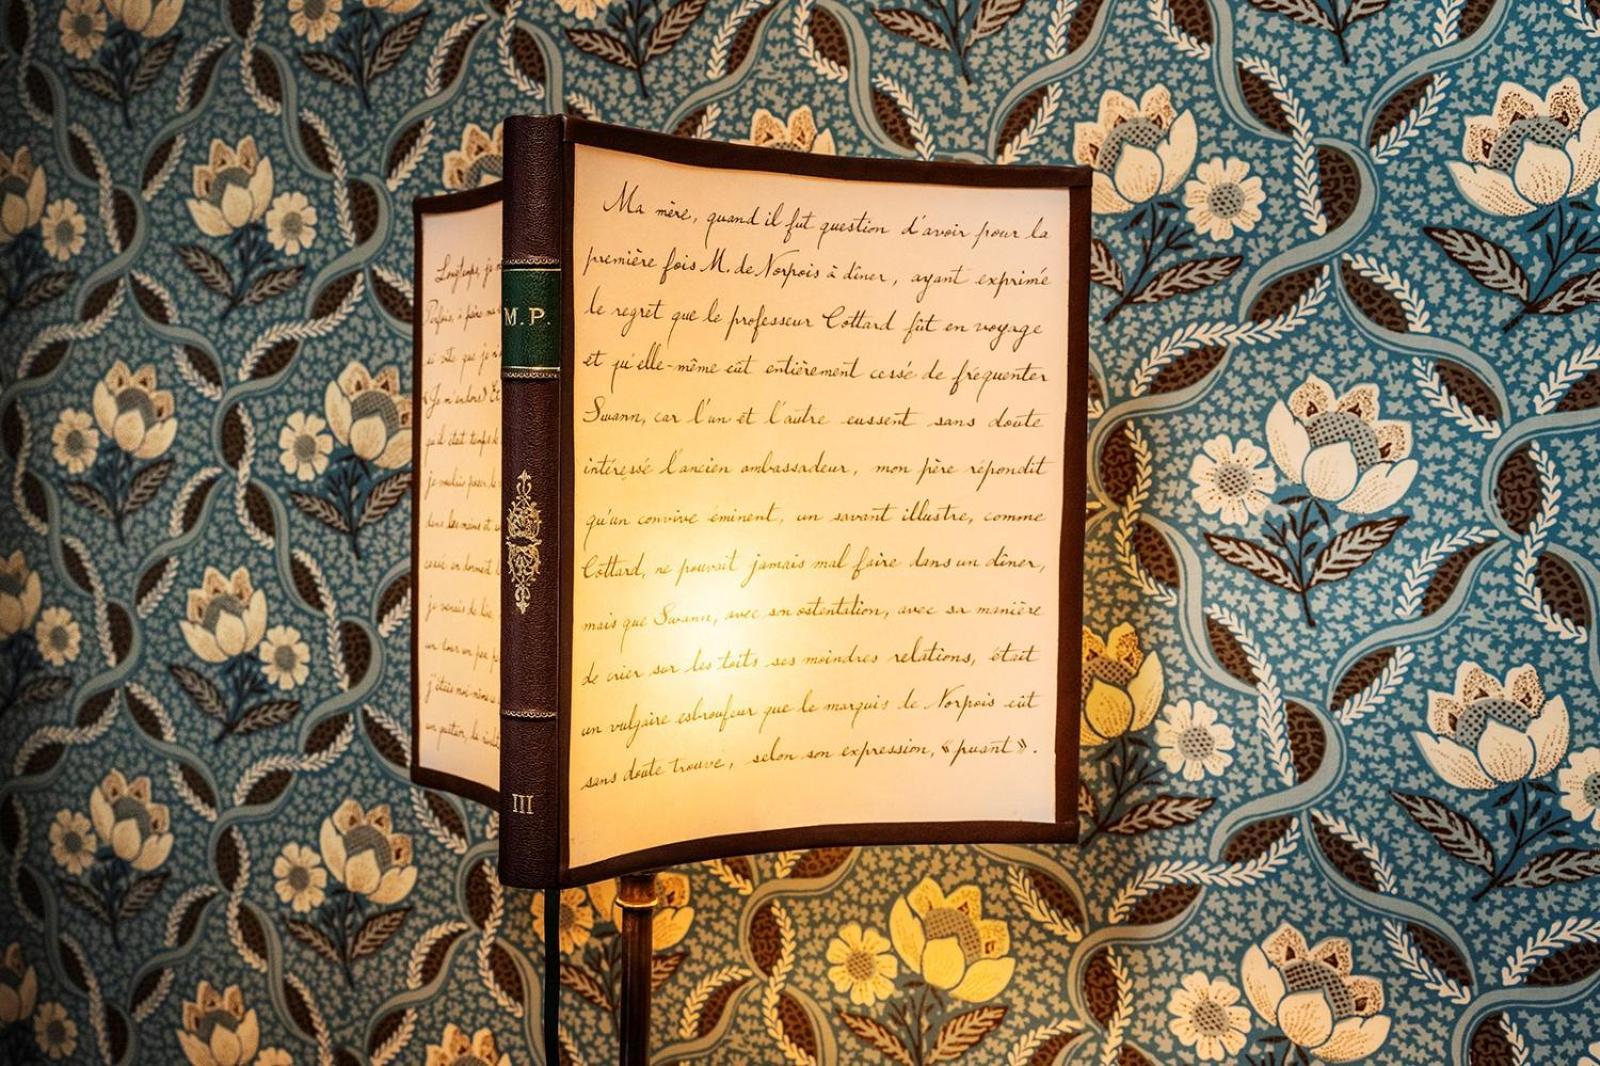 Longtemps, je
Parfois, à peine ma
si vite que je n
« Je m'endors » Et
qu'il était temps de
je voulais poser le
dans les mains et
cessé en dormant
je venais de lire
un tour un peu p
j'étais moi-même
un quatuor, la rivali
M.P.
III
Ma mère, quand il fut question d'avoir pour la
première fois M. de Norpois à dîner, ayant exprimé
le regret que le professeur Cottard fût en voyage
et qu'elle-même eût entièrement cessé de fréquenter
Swann, car l'un et l'autre eussent sans doute
intéressé l'ancien ambassadeur, mon père répondit
qu'un convive éminent, un savant illustre, comme
Cottard, ne pouvait jamais mal faire dans un dîner,
mais que Swann, avec son ostentation, avec sa manière
de crier sur les toits ses moindres relations, était
un vulgaire esbroufeur que le marquis de Norpois eût
sans doute trouvé, selon son expression, « puant ».